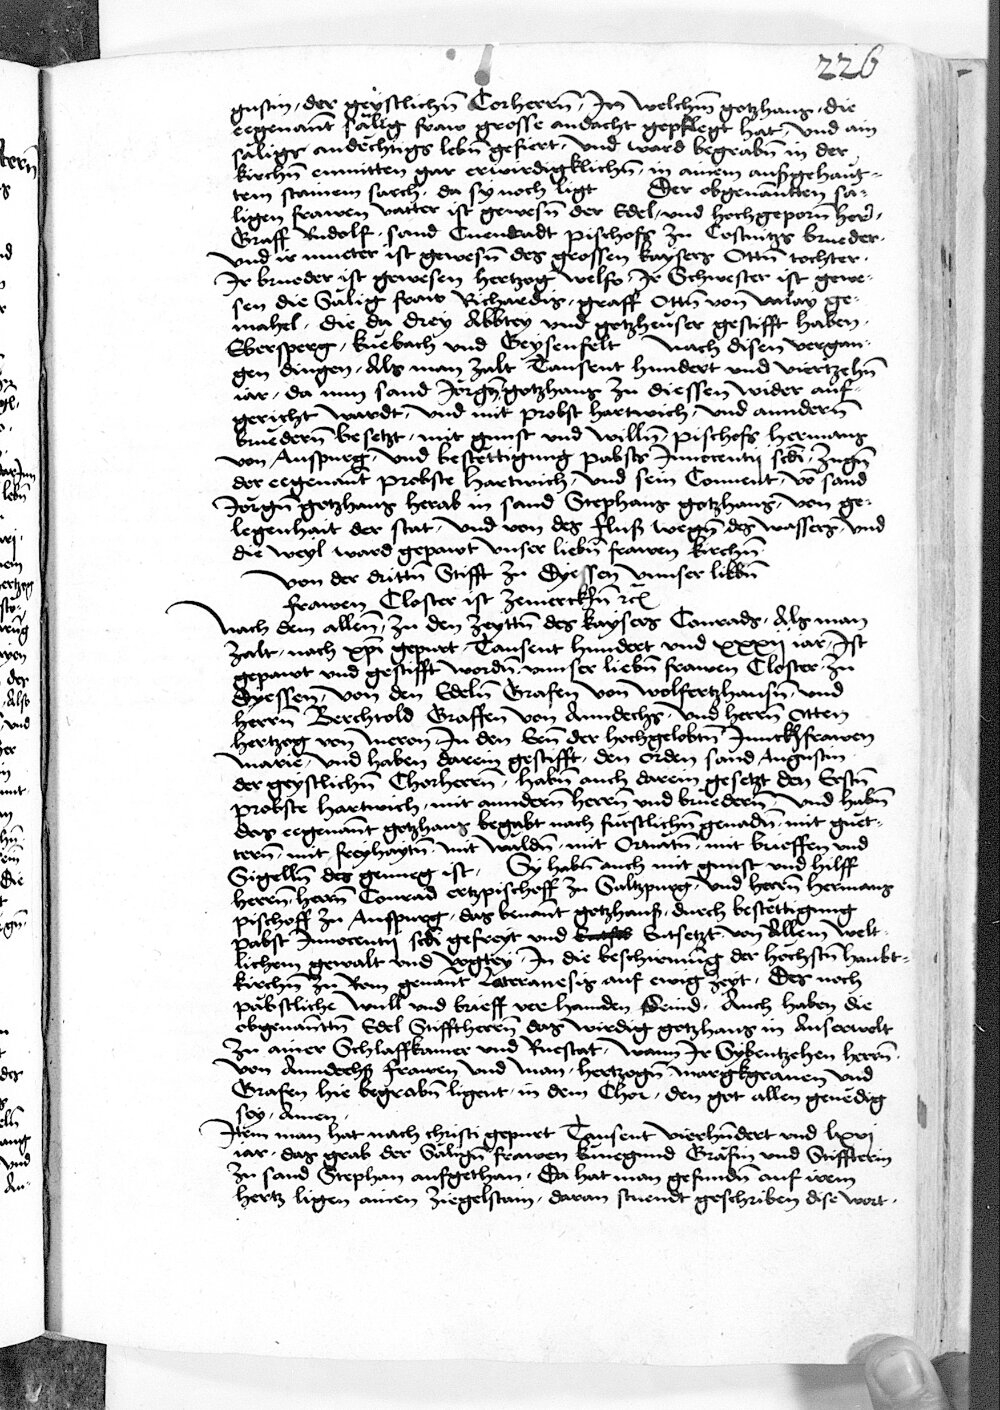 226
gustin, der geystlichn̄ Corherrn̄, In welchm̄ gotzhaus, die
eegenant sälig fraw grosse andacht gepflegt hat, und ain
säligs andechtigs lebn̄ gefiert, und ward begrabn̄ in der
kirchn̄ enmitten gar erwirdigklichn̄, in ainem außgehaut-
tem stainem sarch, da sy noch ligt Der obgenantten sä-
ligen frawen vatter ist gewesn̄ der Edel, und hochgeporn̄ her,
Graff Rudolf, sand Cuenradt pischofs zu Costnitzs brueder,
und ir mueter ist gewesn̄ des grossen kaysers Ottn̄ tochter,
Ir brueder ist gewesen hertzog welfo, Ir Schwester ist gewe-
sen die Sälig fraw Richardis, graff Ottn̄ von ge-
mahel, die da drey Abbtey und gotzheuser gestifft haben,
Ebersperg, kuebach und Geysenfelt Nach disen vergan-
gen dingen, Als man zalt Tausent hundert und viertzehn̄
iar, da nun sand Jörgn̄ gotzhaus zu diessen wider auf-
gericht wardt, und mit probst hartwich, und anndern̄
bruedern̄ besetzt, mit gunst und willn̄, pischofs hermans
von Auspurg, und bestettigung pabsts Innocentii scdi, Zugn̄
der eegenant probste hartwich, und sein Conuent, vō sand
Jörgn̄ gotzhaus herab in sand Stephans gotzhaus, von ge-
legenhait der stat, und von des fluß wegn̄ des wassers, und
die weyl ward gepawt unser liebn̄ frawen kirchn̄
Von der drittn̄ Stifft zu Dyessen unnser liebn̄
frawen Closter ist zemerckhn̄ etc̄
Nach dem allen, zu den zeyttn̄ des kaysers Conrads, Als man
zalt, nach xpi gepurt, Tausent hundert und xxxii iar, Ist
gepawt und gestifft wordn̄, unnser liebn̄ frawen Closter, zu
Dyessen, von den Edeln̄ Grafen von wolfertzhausn̄, und
herrn̄ Berchtold Graffen von Anndechs, und herrn̄ Otten
hertzog von Meron In den Ern̄ der hochgelobtn̄ Junckhfrawen
Marie, und haben darein gestifft, den orden sand Augustin
der geystlichn̄ Chorherrn̄, habn̄ auch darein gesetzt den Erstn̄
probste hartwich, mit anndern̄ herrn̄ und bruedern̄, und habn̄
das eegenant gotzhaus begabt nach fürstlichn̄ genadn̄, mit güet-
tern̄, mit freyhaytn̄, mit wäldn̄, mit Ornatn̄, mit brieffen und
Sigelln̄ des genueg ist, Sy habn̄ auch mit gunst und hilff
herrn̄, herrn̄ Conrad ertzpischoff zu Saltzpurg, und herrn̄ hermans
pischoff zu Auspurg, das benant gotzhauß, durch bestettigung
pabst Innocentii scdi gefreyt und Entsetzt von Allem welt-
lichem gewalt und vogtey, In die beschirmung der höchstn̄ haubt-
kirchn̄ zu Rom genant Lateranesis auf ewig zeyt, Des noch
päbstliche Bull und brieff verhanden Seind, Auch haben die
obgenanttn̄ Edel Stifftherrn̄ das wirdig gotzhaus in Auserwelt
zu ainer Schlaffkamer und Ruestat, wann Ir Sybentzehen herrn̄,
von Anndechß frawen und man, hertzogn̄ margkgrauen und
Grafen hie begrabn̄ ligent, in dem Chor, den got allen genedig
sey, Amen,
Item man hat nach christi gepurt Tausent vierhundert und lxvi
iar, das grab der Sälign̄ frawen kunegund Gräfin und Stiffterin
zu sand Stephan aufgethan, Da hat man gefundn̄ auf irem
hertz ligen ainen ziegelstain, daran stuendt geschriben dise wort,